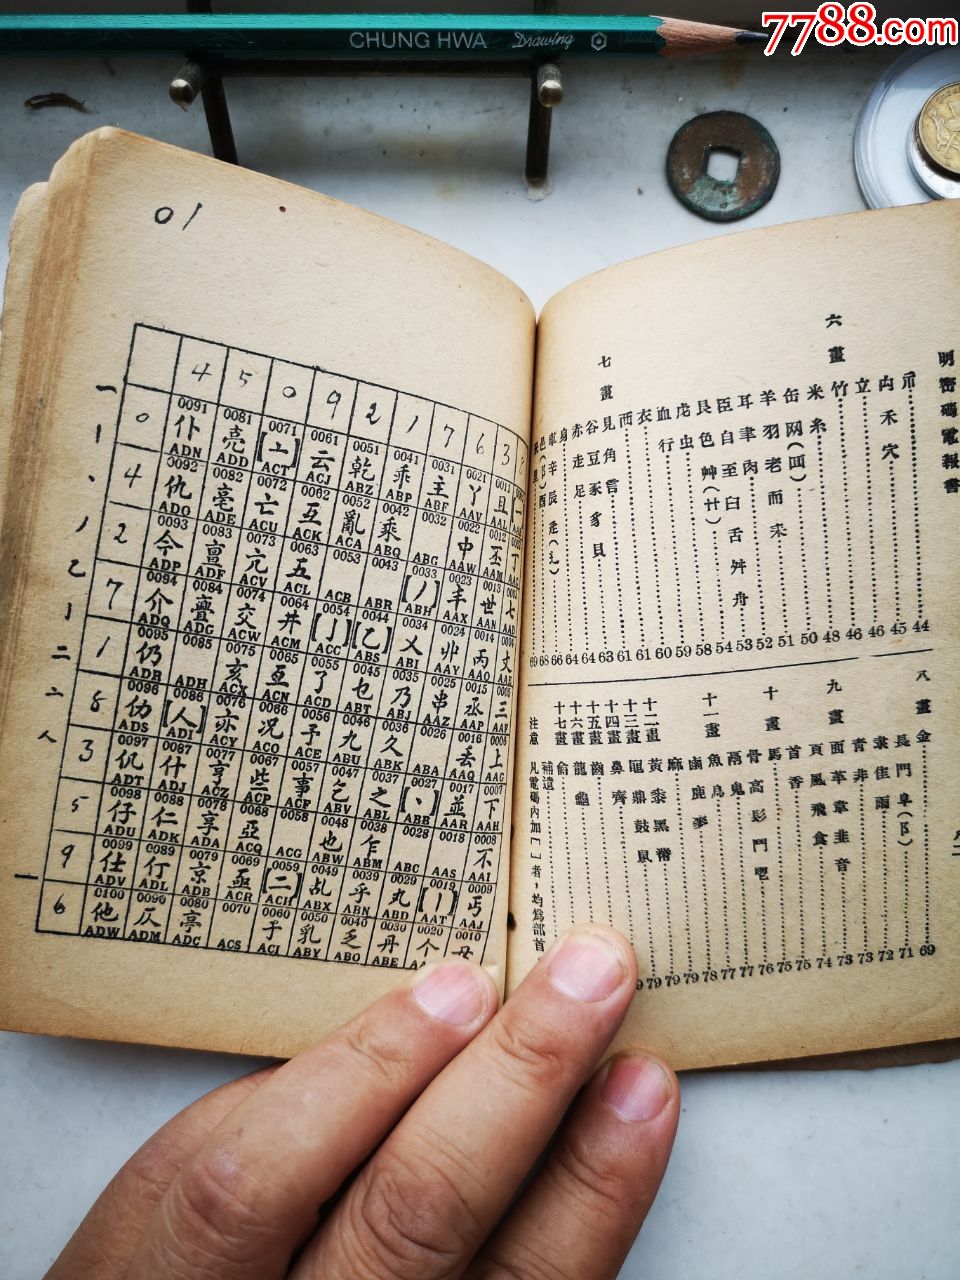 CHUNG HWA Drawing
7788.com
明密碼電報書
立
六畫
竹
米糸
缶网(罒)
羊羽老而耒
耳聿肉
臣自至臼舌舛舟
艮色艸(艹)
虍虫
血行
衣
襾
七畫
見角言
谷豆豕豸貝
赤走足
身
車辛辰辵(辶)
69 68 66 64 64 63 61 61 60 59 58 54 53 52 51 50 48 46 46 45 44
八畫
金
長門阜(阝)
隶隹雨
青非
九畫
面革韋韭音
頁風飛食
首香
十畫
馬
骨高髟鬥鬯
鬲鬼
十一畫
魚鳥
鹵鹿麥
麻
十二畫
黃黍黑黹
十三畫
黽鼎鼓鼠
十四畫
鼻齊
十五畫
齒
十六畫
龍龜
十七畫
龠
補遺
注意 凡電碼內加「 」者，均爲部首
79 79 79 78 77 77 76 75 75 74 73 73 72 71 69
01
4 5 0 9 2 1 7 6 3
0 0091 0081 0071 0061 0051 0041 0031 0021 0011
仆 亮 【亠】 云 乾 乖 主 丫 且
ADN ADD ACT ACJ ABZ ABP ABF AAV AAL
4 0092 0082 0072 0062 0052 0042 0032 0022 0012
仇 亳 亡 互 亂 乘 中 丕 丁
ADO ADE ACU ACK ACA ABQ ABG AAW AAM
2 0093 0083 0073 0063 0053 0043 0033 0023 0013
今 亶 亢 五 【丿】 丰 世 七
ADP ADF ACV ACL ACB ABR ABH AAX AAN AAD
7 0094 0084 0074 0064 0054 0044 0034 0024 0014
介 亹 交 井 【亅】 【乙】 乂 丱 丙 丈
ADQ ADG ACW ACM ACC ABS ABI AAY AAO
1 0095 0085 0075 0065 0055 0045 0035 0025 0015 0005
仍 亥 亙 了 乜 乃 串 丞 三
ADR ADH ACX ACN ACD ABT ABJ AAZ AAP
8 0096 0086 0076 0066 0056 0046 0036 0026 0016 0006
仂 【人】 亦 况 予 九 久 丟 上
ADS ADI ACY ACO ACE ABU ABK ABA AAQ AAG
3 0097 0087 0077 0067 0057 0047 0037 0027 0017 0007
仉 什 亨 些 事 乞 之 【丶】 並 下
ADT ADJ ACZ ACP ACF ABV ABL ABB AAR AAH
5 0098 0088 0078 0068 0058 0048 0038 0028 0018 0008
仔 仁 享 亞 也 乍 不
ADU ADK ADA ACQ ACG ABW ABM ABC AAS AAI
9 0099 0089 0079 0069 0059 0049 0039 0029 0019 0009
仕 仃 京 亟 【二】 乩 乎 丸 【丨】 丐
ADV ADL ADB ACR ACH ABX ABN ABD AAT AAJ
6 0100 0090 0080 0070 0060 0050 0040 0030 0020 0010
他 仄 亭 于 乳 乏 丹 个
ADW ADM ADC ACS ACI ABY ABO ABE
一丨丶丿乙亅二亠人